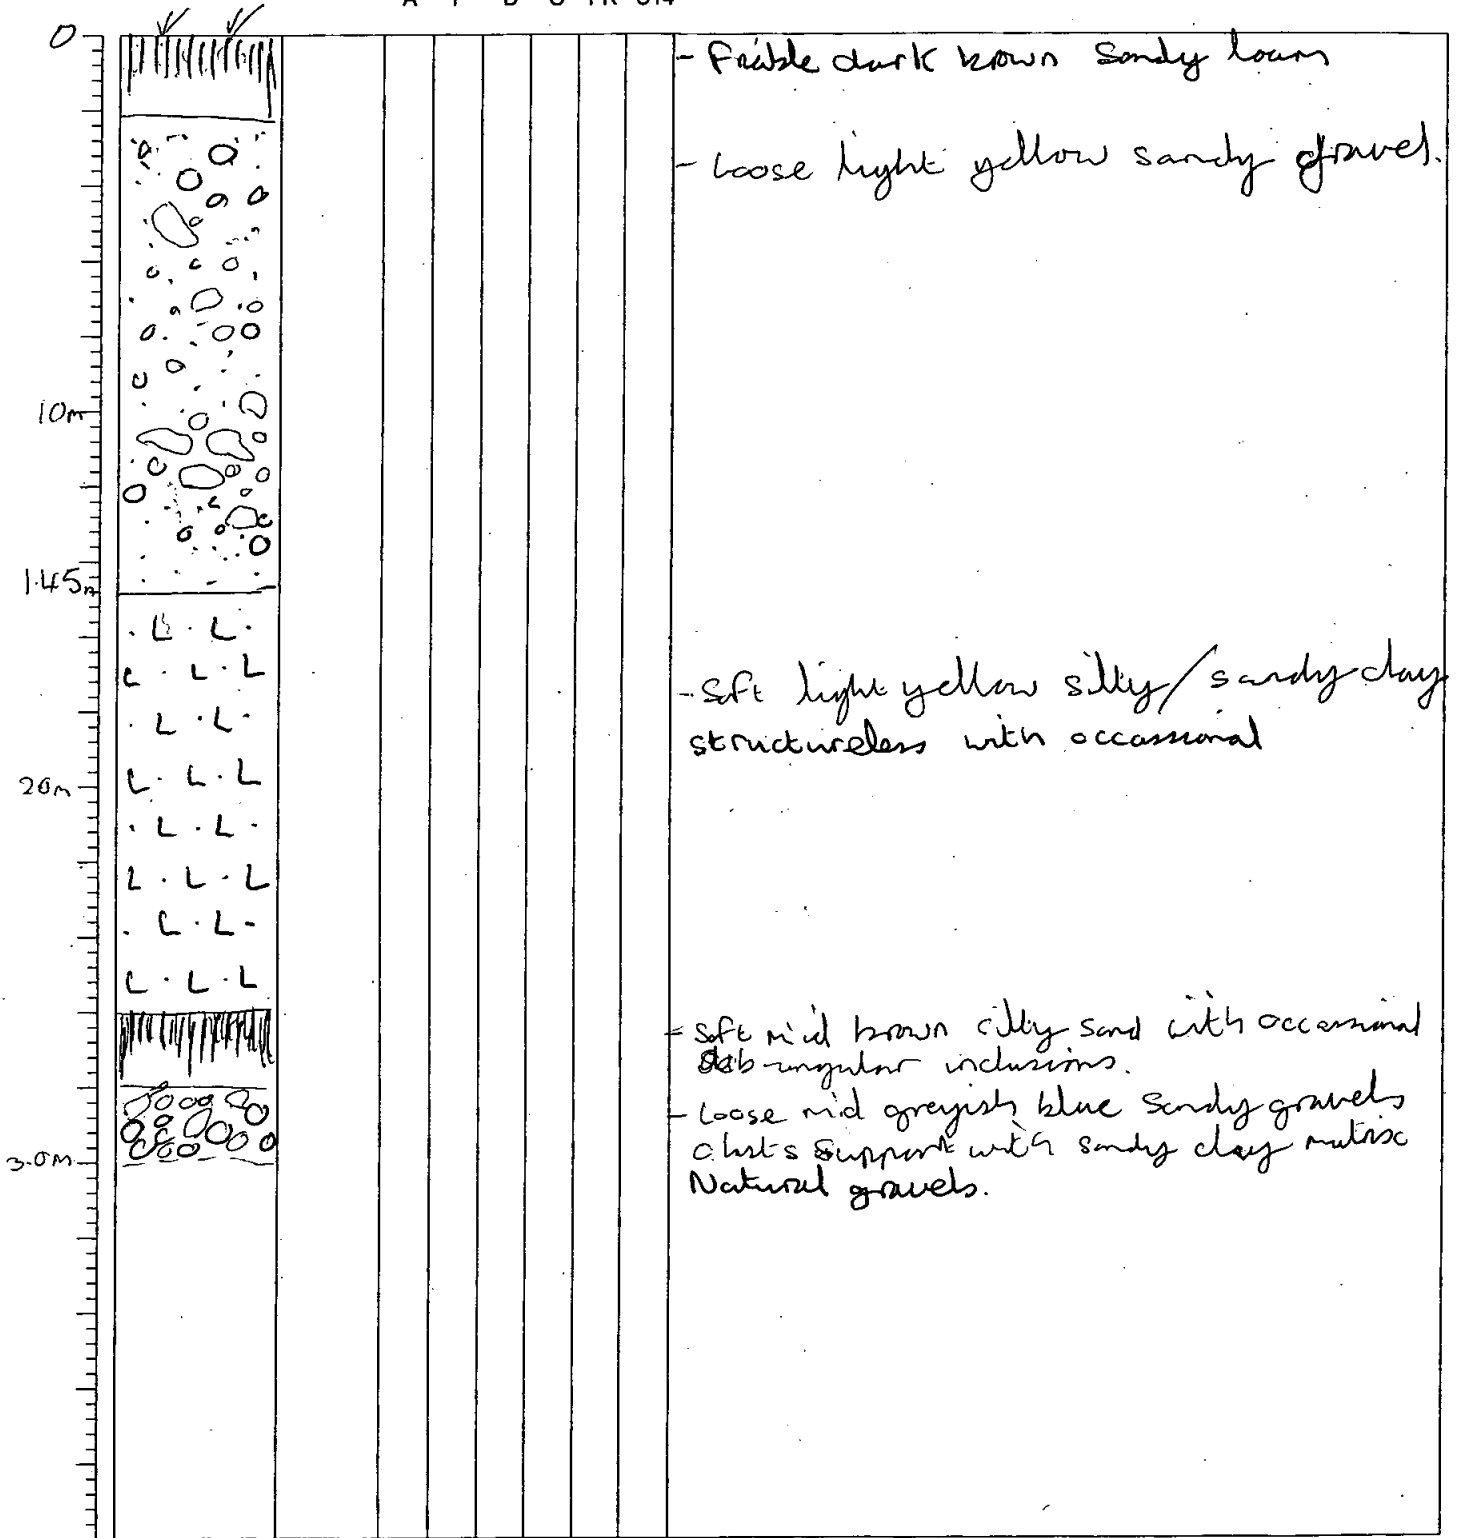 0
- Friable dark brown Sandy loam
- Loose light yellow sandy gravel.
10m
1.45m
- Soft light yellow silty/sandy clay
structureless with occassional
20m
- Soft mid brown silty sand with occassional
sub-angular inclusions.
- Loose mid greyish blue Sandy gravels
clasts support with sandy clay matrix
3.0m
Natural gravels.